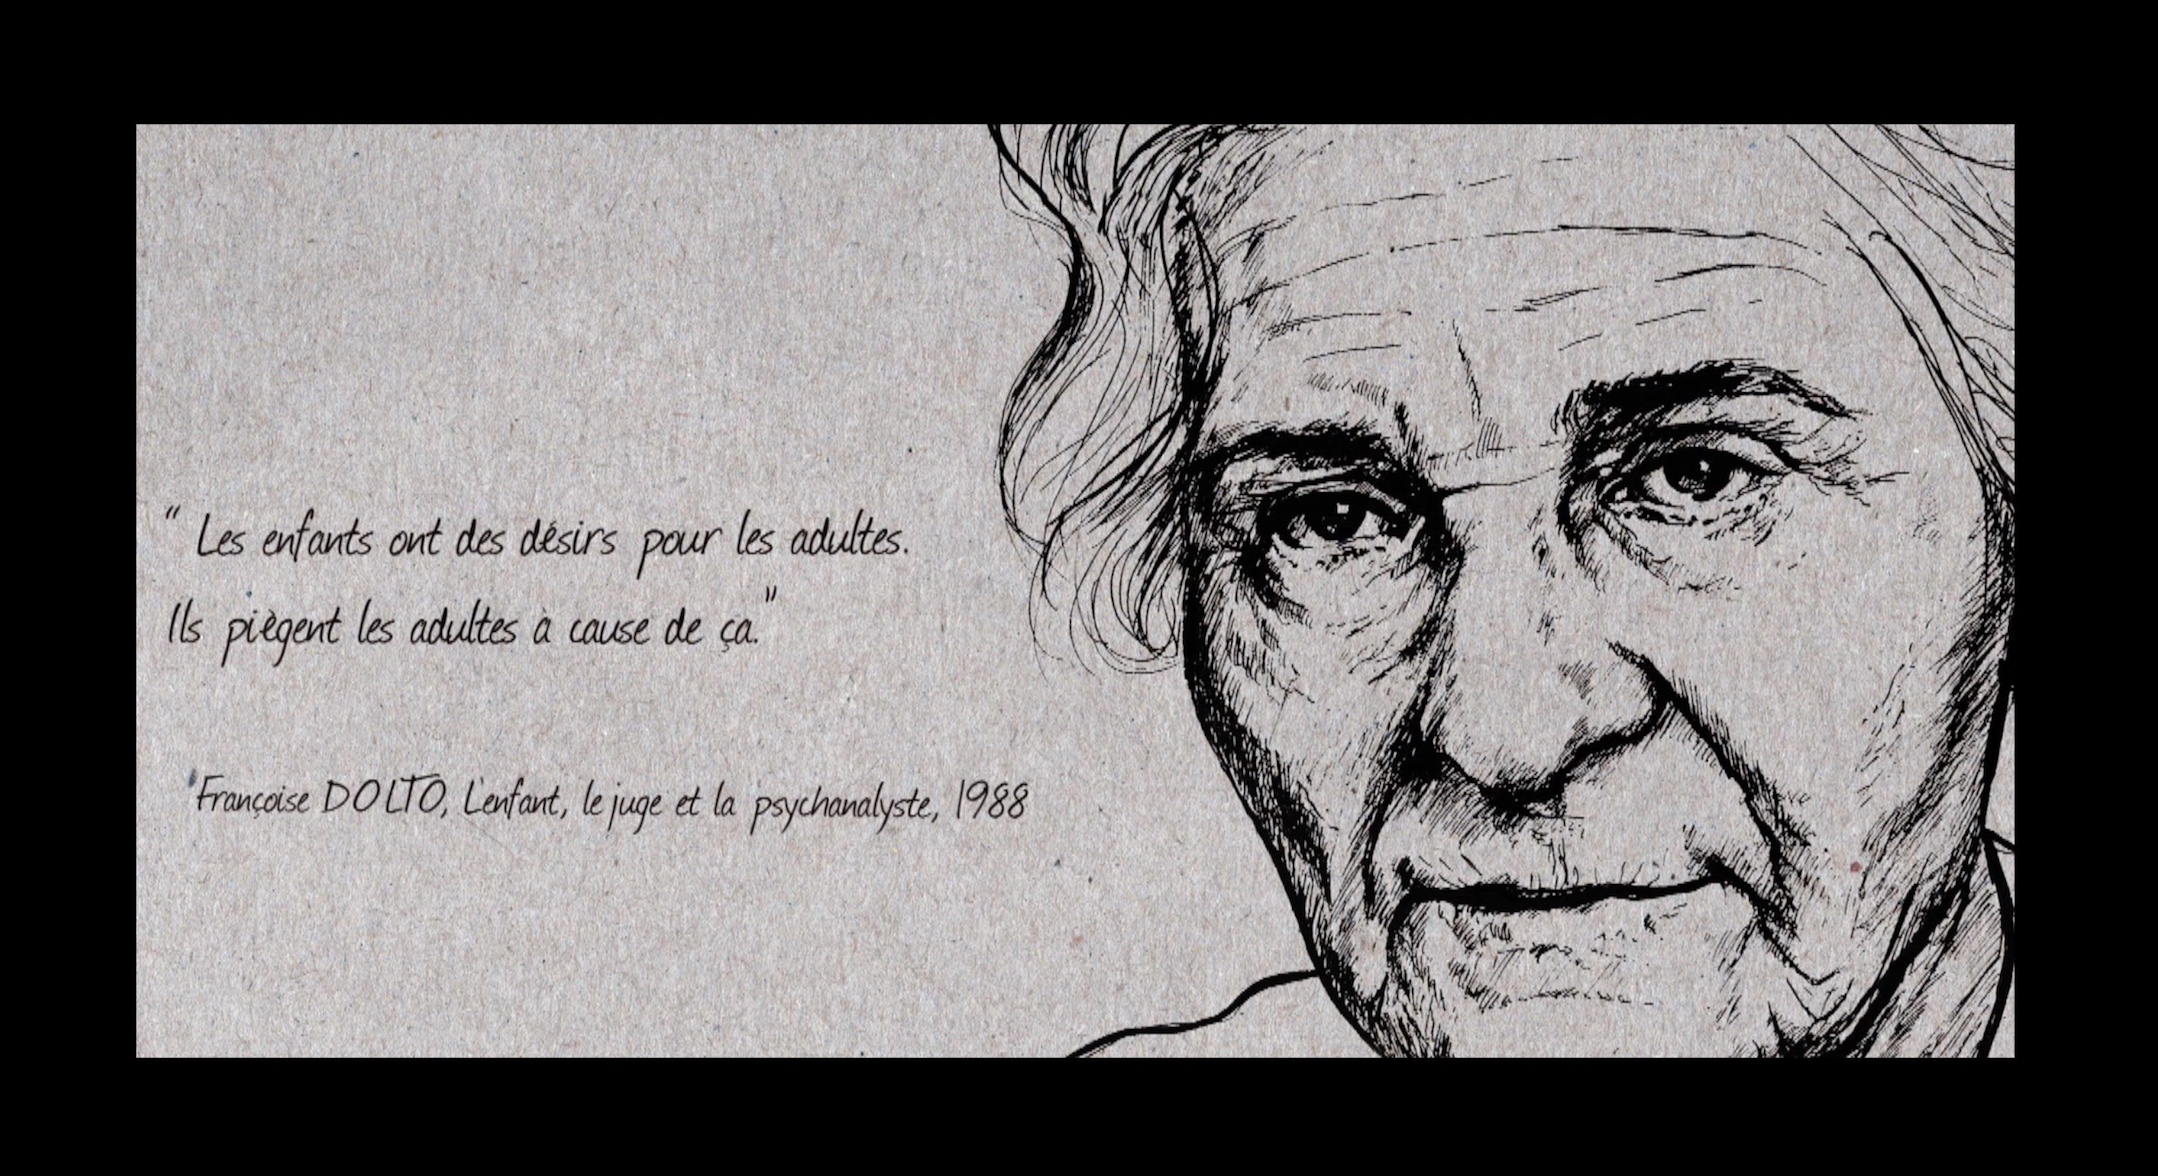 “ Les enfants ont des désirs pour les adultes.
Ils piègent les adultes à cause de ça.”
Françoise DOLTO, L'enfant, le juge et la psychanalyste, 1988